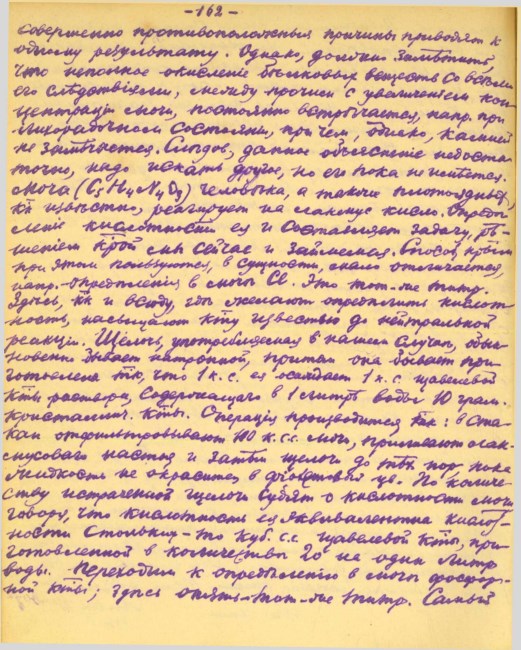 -162-
совершенно противоположныя причины приводят к
одному результату. Однако, должно замѣтить,
что неполное окисленіе бѣлковых веществ со всѣми
его слѣдствіями, между прочим с увеличеніем кон-
центраціи мочи, постоянно встрѣчается, напр. при
лихорадочном состояніи, при чем, однако, камней
не замѣчается. Слѣдов, данное объясненіе недоста-
точно, надо искать другое, но его пока не имѣется.
Моча (C5H4N4O3) человѣка, а также плотоядных,
кк извѣстно, реагирует на лакмус кисло. Опредѣ-
леніе кислотности ея и составляет задачу, рѣ-
шеніем крой мы сейчас и займемся. Способ, крым
при этом пользуются, в сущности, мало отличается
напр. опредѣленія в мочѣ Cl. Это тот-же титр.
Здѣсь, кк и всюду, гдѣ желают опредѣлить кислот-
ность, насыщают кту известью до нейтральной
реакціи. Щелочь, употребляемая в нашем случаѣ, обык-
новенно бывает натронной, притом она бывает при-
готовлена так, что 1 к.с. ея осаждает 1 к.с. щавелевой
кты раствора, содержащаго в 1 литрѣ воды 10 грам.
кристаллич. кты. Операція производится так: в ста-
кан отфильтровывают 100 к.с. мочи, приливают лак-
мусоваго настоя и затѣм щелочи до тѣх пор, пока
жидкость не окрасится в фіолетовый цв. По количе-
ству истраченной щелочи судят о кислотности мочи
говоря, что кислотность ея эквивалентна кислот-
ности стольких-то куб. с.с. щавелевой кты, при-
готовленной в количествѣ 20 на один литр
воды. Переходим к опредѣленію в мочѣ фосфор-
ной кты; здѣсь опять-тот-же титр. Самый